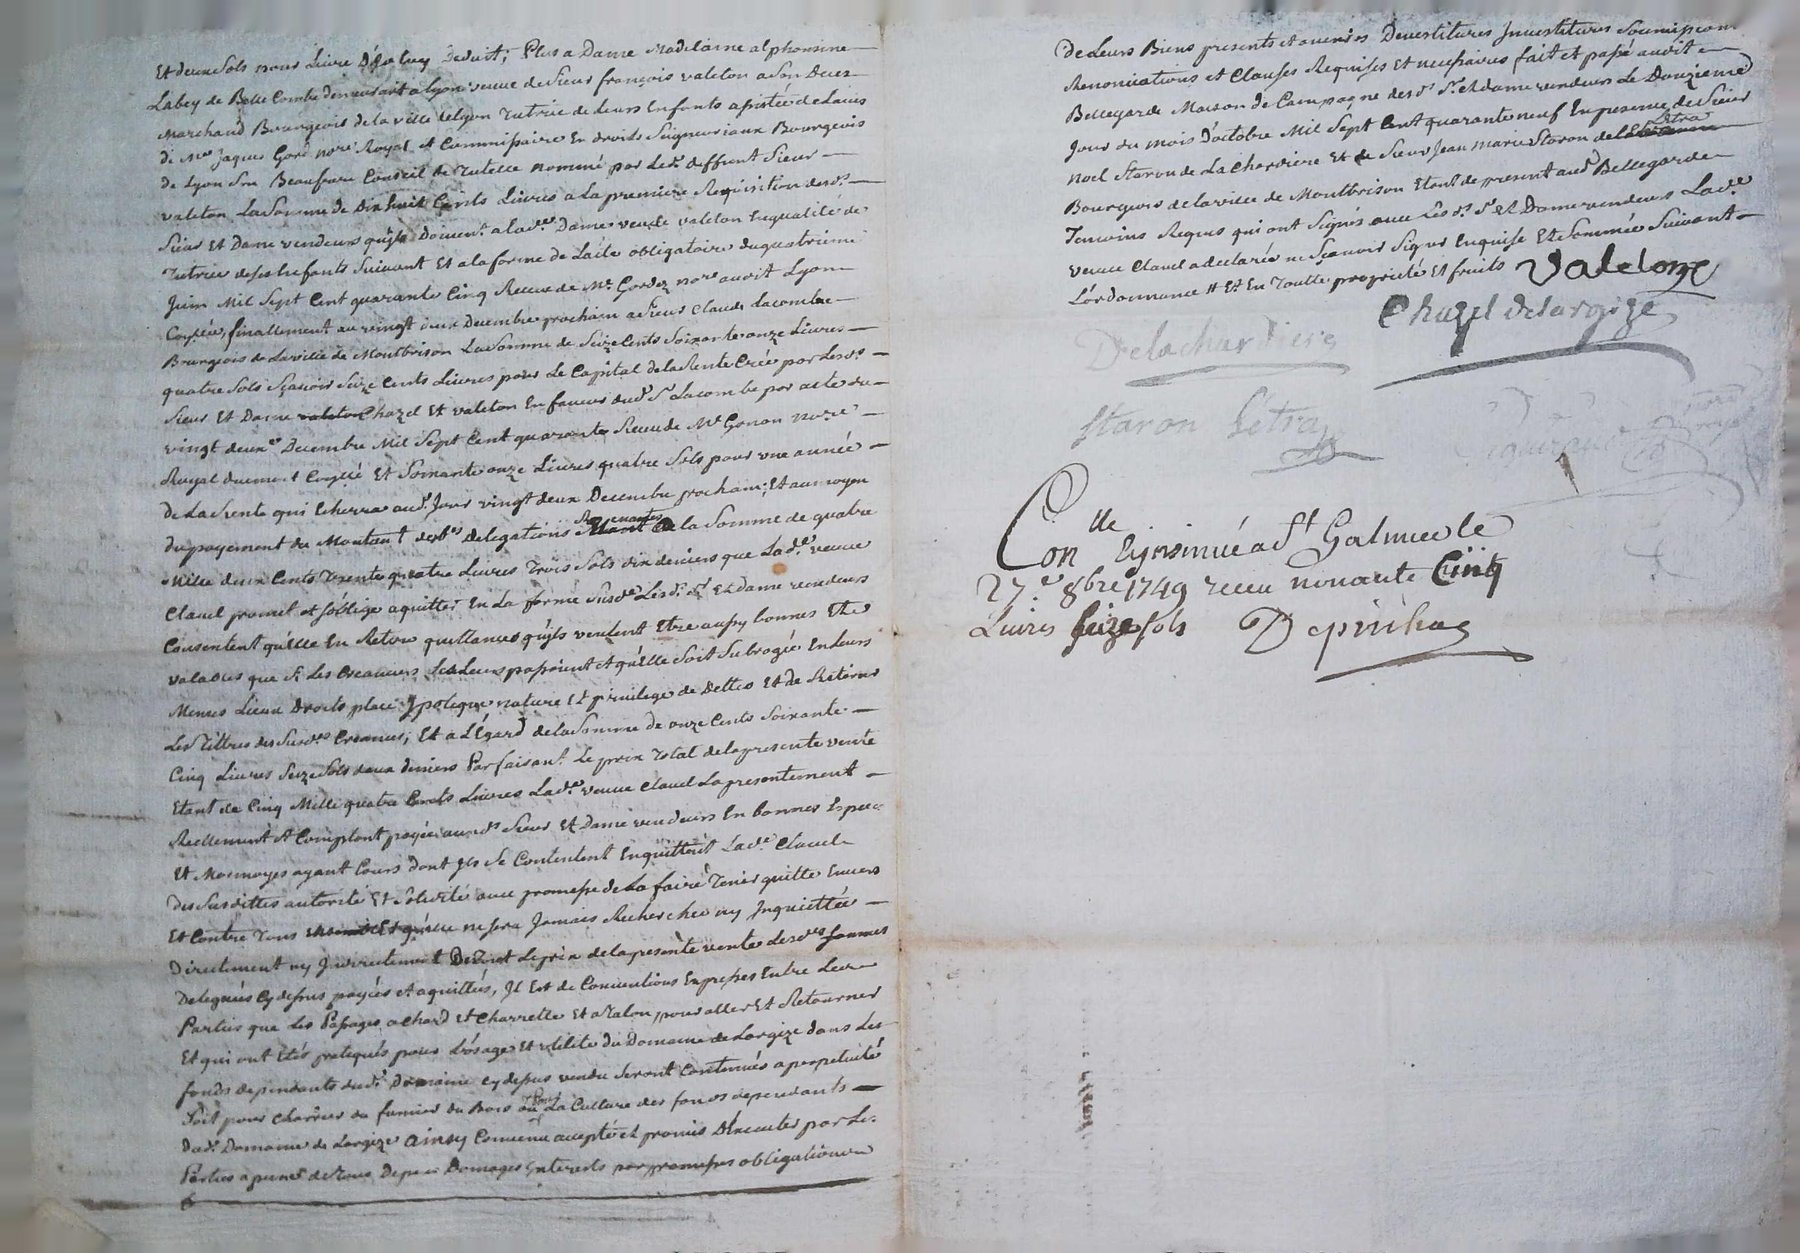 Et deux sols pour Livre d'Iceluy deduit; Plus a Dame Madelaine alphonsine
Labey de Belle Combe demeurant a Lyon veuve de Sieur françois valeton a son Deces
Marchand Bourgeois de la ville de Lyon Tutrice de Leurs Enfants assistée de l'avis
de Me Jaques Goré nore Royal et Commissaire En droits Seigneuriaux Bourgeois
de Lyon Son Beaufrere Conseil de Tutelle nommé par Led. deffunt Sieur
valeton La Somme de Dix huit Cents Livres a La premiere Requisition desd.
Sieur Et Dame vendeurs qu'ils doivent a lad. Dame veuve valeton En qualité de
Tutrice de ses Enfants Suivant Et a la forme de L'acte obligatoire du quatrieme
Juin Mil Sept Cent quarante Cinq Receu de Me nore audit Lyon
finallement au vingt deux Decembre prochain a Sieur Claude Lacombe
Bourgeois de La ville de Montbrison La Somme de Seize Cents Soixante onze Livres
quatre Sols Sçavoir Seize Cents Livres pour Le Capital de La Rente Créé par Lesd.
Sieur Et Dame valeton Chazel Et valeton En faveur dud. Sr Lacombe par acte du
vingt deuxe Decembre Mil Sept Cent quarante Receu de Me Gonon Nore
Royal duement Et Soixante onze Livres quatre Sols pour une année
de La Rente qui Echerra aud. Jour vingt deux Decembre prochain; Et au moyen
du payement du Montant desd. delegations Revenantes a la Somme de quatre
Mille deux Cents Trente quatre Livres Trois Sols dix deniers que Lad. veuve
Clauel promet et s'oblige aquitter En La forme Susd. Lesd. Sr Et dame vendeurs
Consentent qu'elle En Retire quittances qu'ils veulent Etre aussy bonnes Et
valables que Si Les Creanciers Les Leurs passoient Et qu'Elle Soit Subrogée En Leurs
Memes Lieux Droits place Ypoteque nature Et privilege de Dettes Et de Retirer
Les Tittres des Susd. Creances; Et a L'Egard de la Somme de onze Cents Soixante
Cinq Livres Seize Sols deux deniers Parfaisant Le prix Total de la presente vente
Etant de Cinq Mille quatre Cents Livres Lad. veuve Clauel La presentement
Reellement Et Comptant payée auxd. Sieur Et Dame vendeurs En bonnes Especes
Et Monnoyes ayant Cours dont Ils Se Contentent En quittent Lad. Clauel
des Susdittes autorité Et Solidité avec promesse de La faire Tenir quitte Envers
Et Contre Tous ne sera Jamais Recherchée ny Inquiettée
Directement ny Indirectement Le prix de la presente vente Lesd. Sommes
Deleguées Cy dessus payées et aquittées, Il Est de Conventions Expresses Entre Les
Parties que Les Passages a Chard Et Charrette Et a Talon, pour aller Et Retourner
Et qui ont Etés pratiqués pour L'usage Et utilité du Domaine de Largize dans Les
fonds dependants dud. Domaine cy dessus vendu Seront Continués a perpetuité
Soit pour Charrier du fumier du Bois ou pour La Culture des fonds dependants
dud. Domaine de Largize ainsy Convenu accepté et promis d'Executer par Les
Parties a peine de Tous Depens Domages Interests par promesses obligations
de Leurs Biens presents et avenirs Devestitures Investitures Soumissions
Renonciations Et Clauses Requises Et necessaires fait et passé audit
Bellegarde Maison de Campagne desd. Sr et dame vendeurs Le Douzieme
Jour du mois d'octobre Mil Sept Cent quarante neuf En presence de Sieur
Noel Staron de La Chardiere Et de Sieur Jean Marie Staron de Letra
Bourgeois de la ville de Montbrison Etant de present aud. Bellegarde
Temoins Requis qui ont Signés avec Lesd. Sr Et Dame vendeurs Lad.
veuve Clauel a declarée ne Sçavoir Signer Enquise Et Sommée Suivant
L'ordonnance # Et En Toutte proprieté Et fruits Valeton
Chazel delargize
Delachardiere
Staron Letra
Conlle Et insinué a St Galmier le
27e 8bre 1749 receu nonante Cinq
Livres Seize sols Depinhac